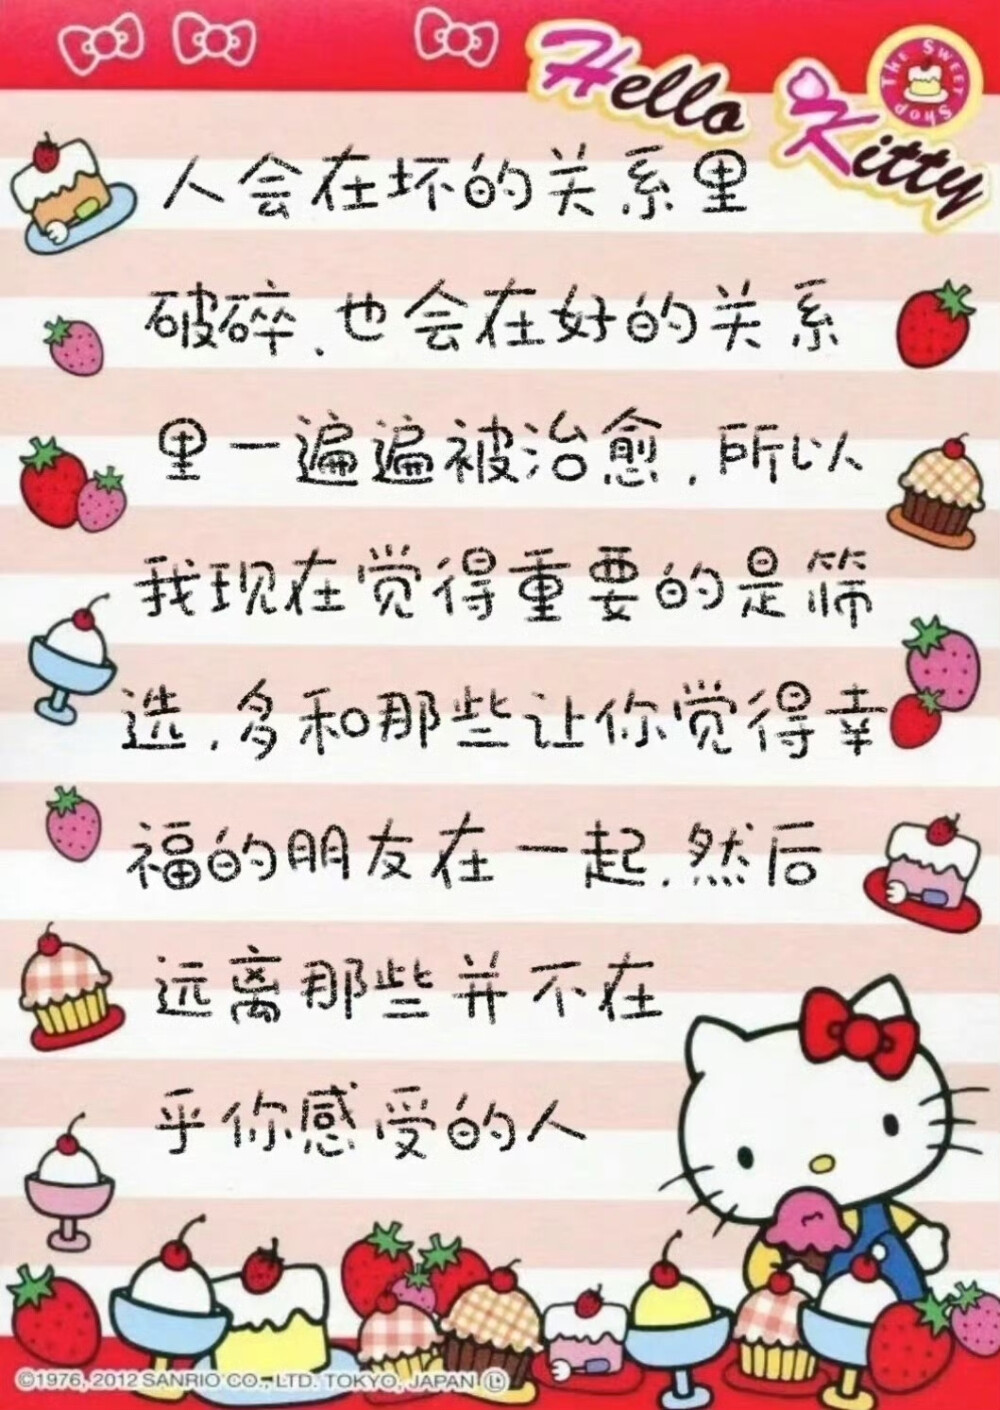 Hello Kitty
The Sweet Shop
人会在坏的关系里
破碎.也会在好的关系
里一遍遍被治愈.所以
我现在觉得重要的是筛
选.多和那些让你觉得幸
福的朋友在一起.然后
远离那些并不在
乎你感受的人
©1976, 2012 SANRIO CO., LTD. TOKYO, JAPAN Ⓛ